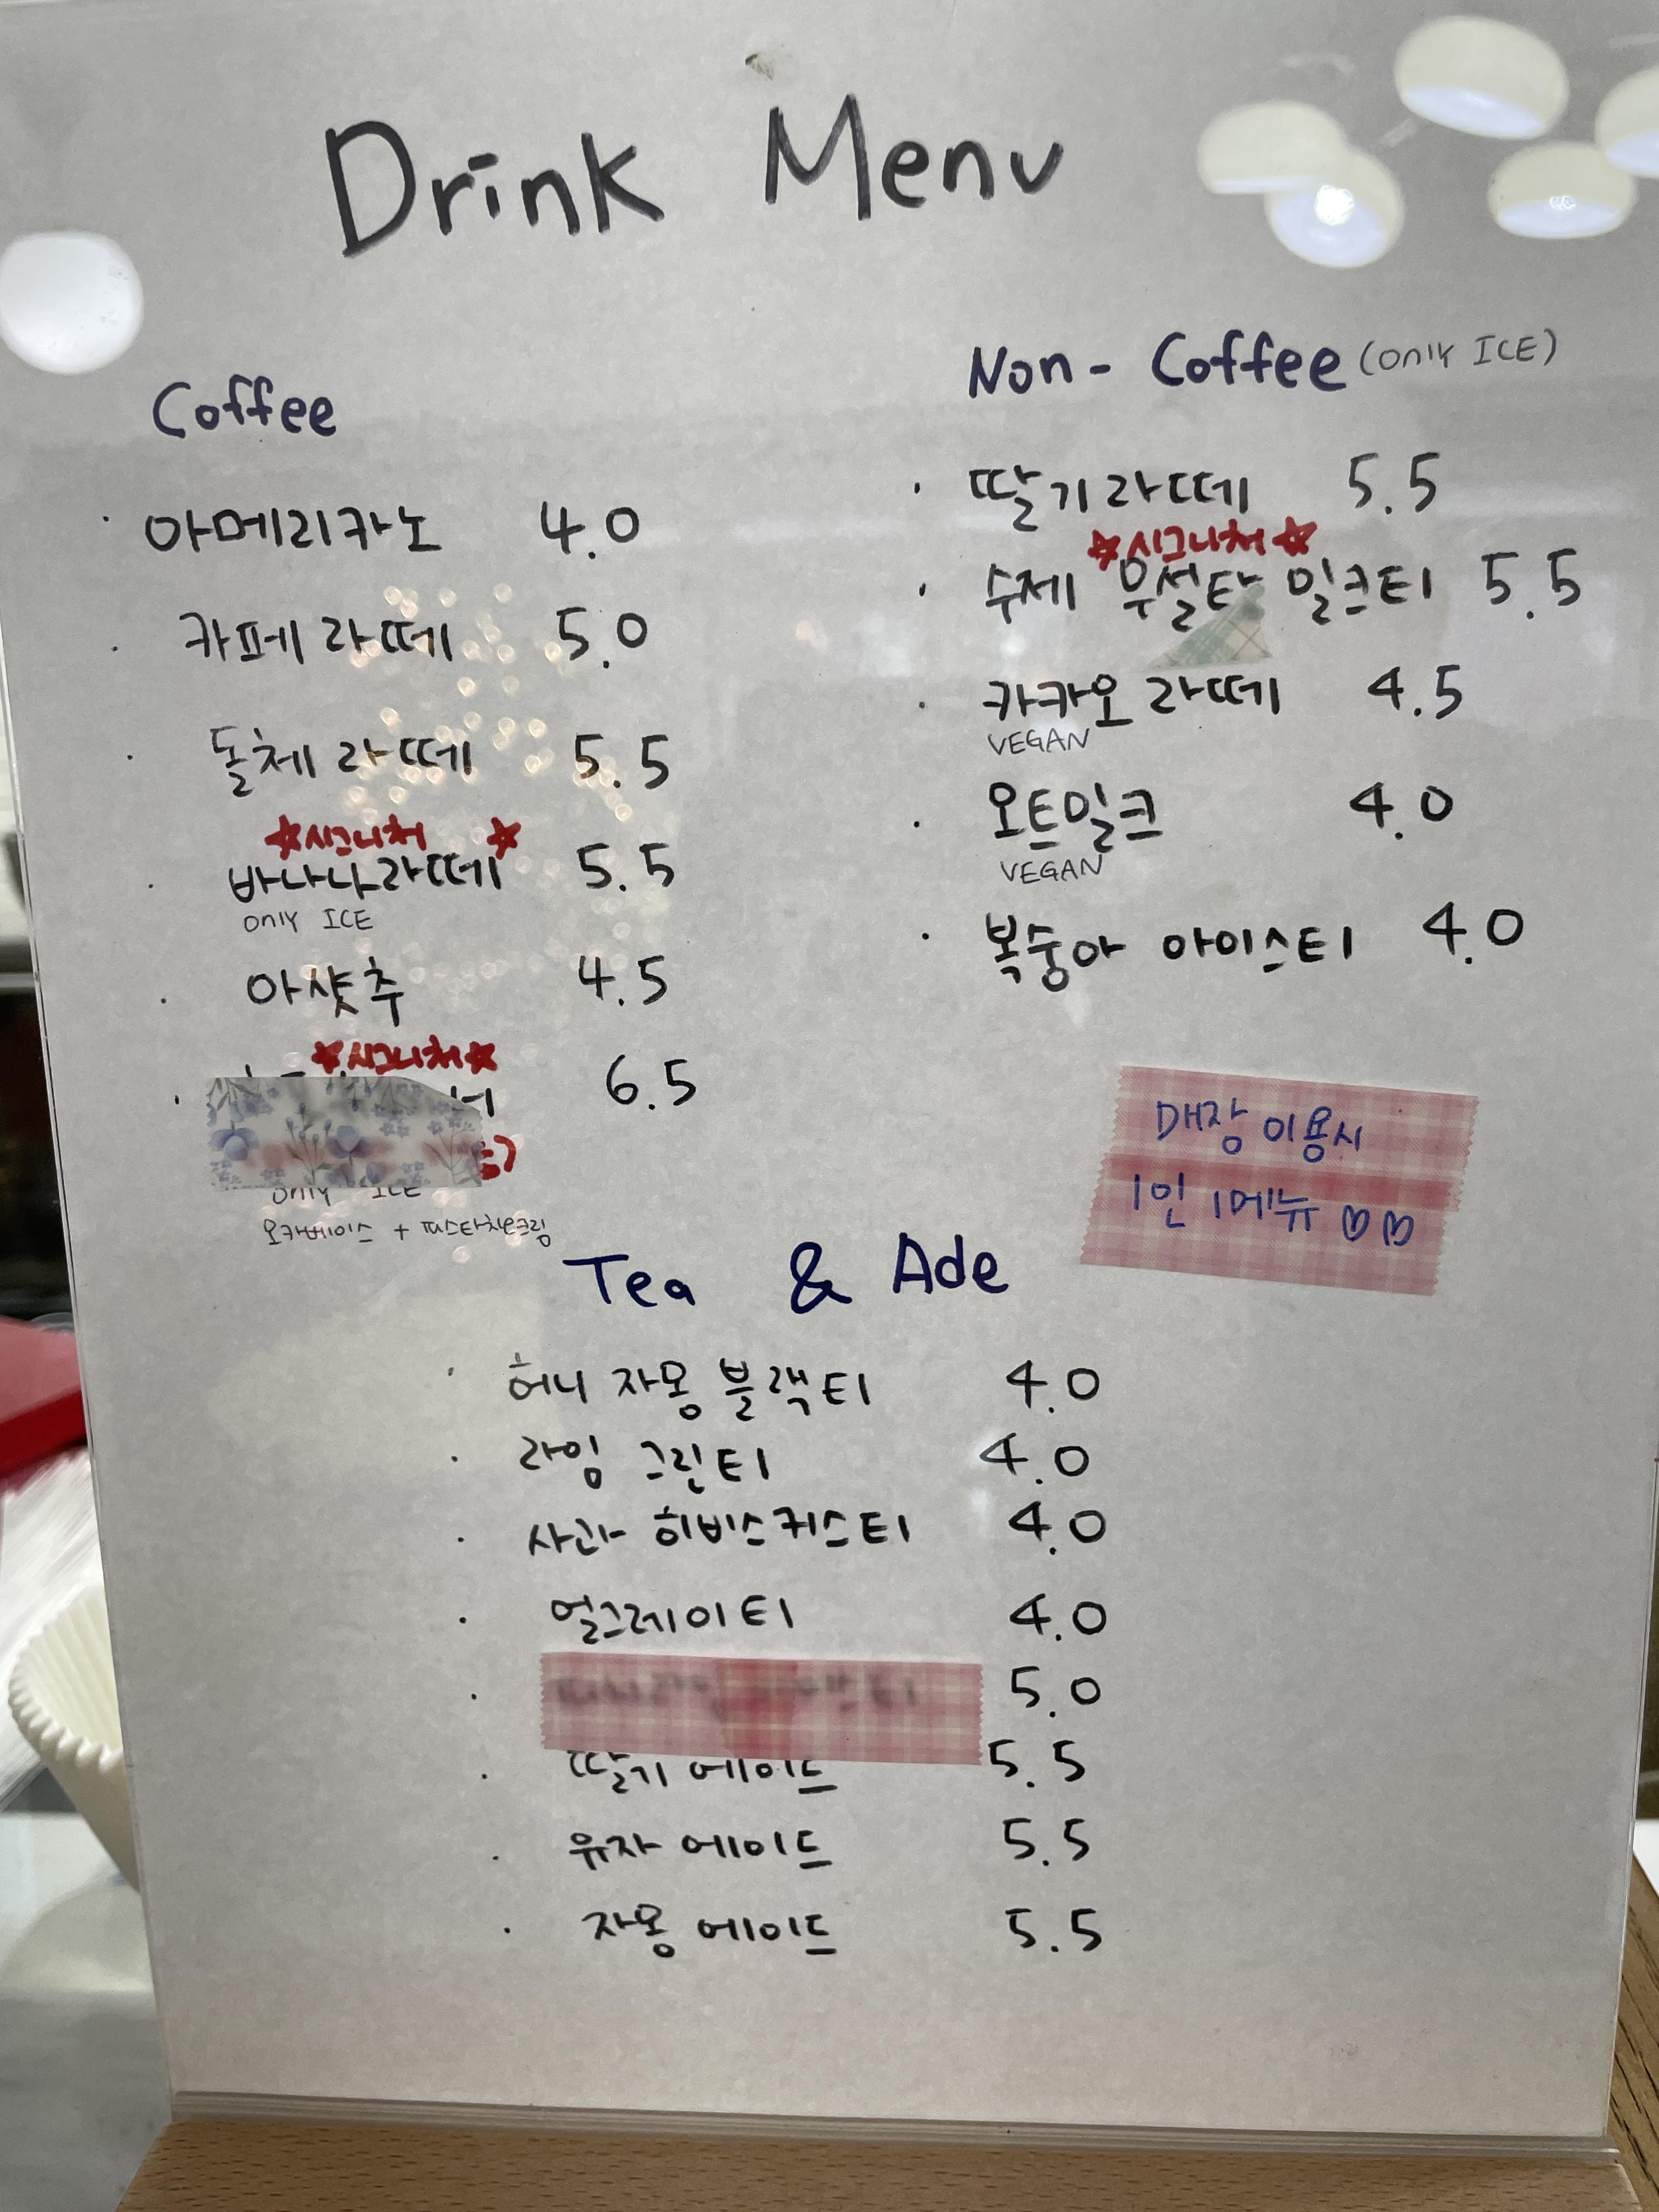 Drink Menu
Coffee
아메리카노 4.0
카페라떼 5.0
돌체라떼 5.5
★시그니처★
바나나라떼 5.5
only ICE
아샷추 4.5
★시그니처★
6.5
only ICE
오카베이스 + 피스타치오크림
Non-Coffee (only ICE)
딸기라떼 5.5
★시그니처★
수제 우설탕 밀크티 5.5
카카오라떼 4.5
VEGAN
오트밀크 4.0
VEGAN
복숭아 아이스티 4.0
매장 이용시
1인 1메뉴 ♡♡
Tea & Ade
허니 자몽 블랙티 4.0
라임 그린티 4.0
사과 히비스커스티 4.0
얼그레이티 4.0
5.0
딸기 에이드 5.5
유자 에이드 5.5
자몽 에이드 5.5